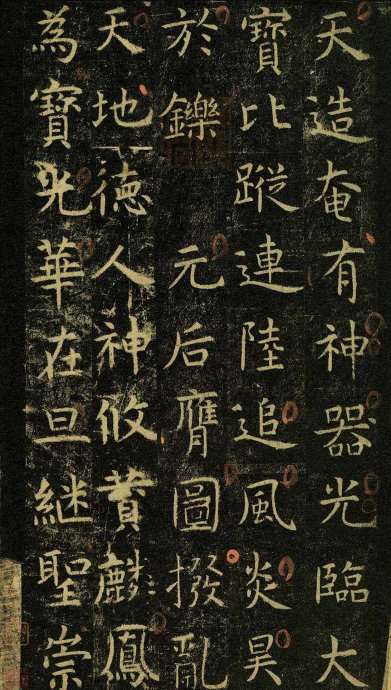 天造奄有神器光臨大
寶比蹤連陸追風炎昊
於鑠元后膺圖撥亂
天地德人神攸贊麟鳳
為寶光華在旦継聖崇